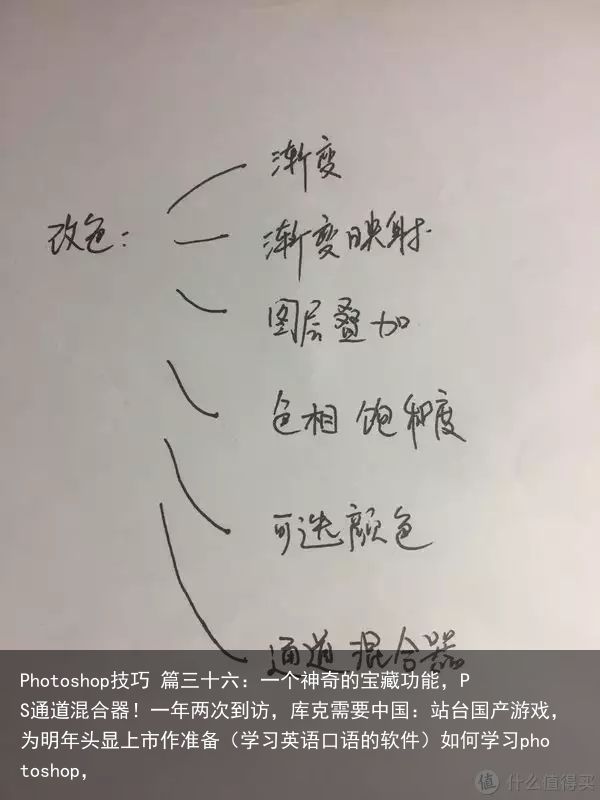 渐变
改色：
渐变映射
图层叠加
色相 饱和度
可选颜色
通道混合器
Photoshop技巧 篇三十六：一个神奇的宝藏功能，P
S通道混合器！一年两次到访，库克需要中国：站台国产游戏，
为明年头显上市作准备（学习英语口语的软件）如何学习pho
toshop，
值 什么值得买